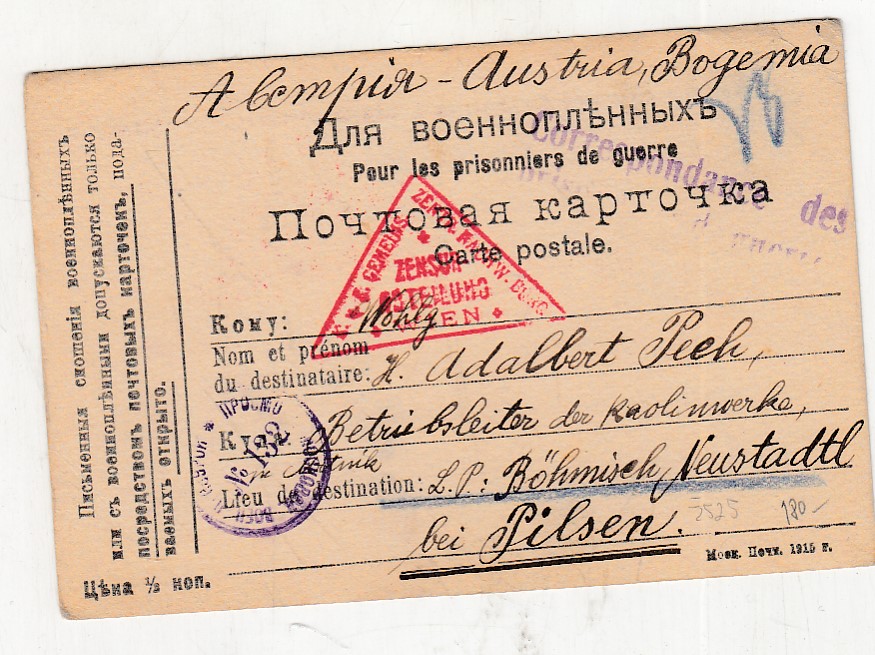 Австрія - Austria, Bogemia
Для военноплѣнныхъ
Pour les prisonniers de guerre
Почтовая карточка
Carte postale.
Correspondance des
Кому: Wohlg
Nom et prénom
du destinataire: H. Adalbert Pech,
Betriebsleiter der Kaolinwerke,
Lieu de destination: L. P: Böhmisch Neustadtl
bei Pilsen.
2525 180-
Моск. Печк. 1915 г.
Письменныя сношенія военноплѣнныхъ
или съ военноплѣнными допускаются только
посредствомъ почтовыхъ карточекъ, пода-
ваемыхъ открыто.
Цѣна ½ коп.
ZENSUR
ABTEILUNG
WIEN
K. u. K. GEMEINS. ZENTR. NACHW. BUREAU
№ 132